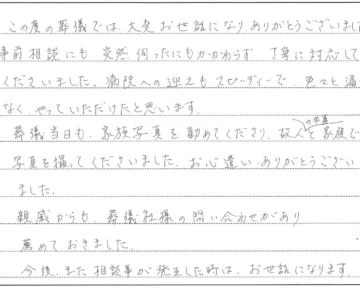 この度の葬儀では、大変お世話になりありがとうございまし
事前相談にも突然伺ったにもかかわらず丁寧に対応して
くださいました。病院への迎えもスピーディーで、色々と漏
なく、やっていただけたと思います。
葬儀当日も、家族写真を勧めてくださり、故人の写真と家族で
写真を撮ってくださいました。お心遣い、ありがとうござい
ました。
親戚からも葬儀社様の問い合わせがあり
薦めておきました。
今後、また相談事が発生した時は、お世話になります。